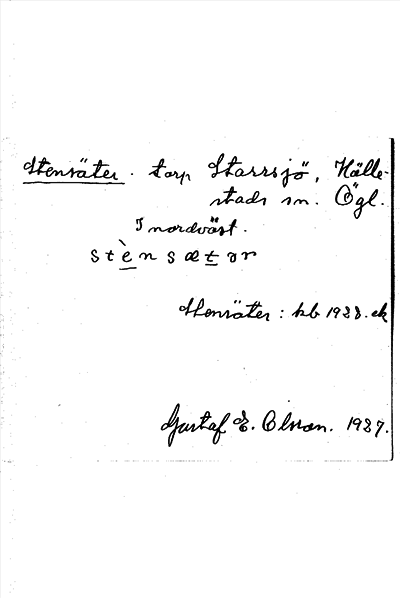 Stensäter. torp Starrsjö, Hälle-
stads sn. Ögl.
I nordväst.
stènsætər
Stensätter: kb 1928. ek
Gustaf E. Olsson. 1927.